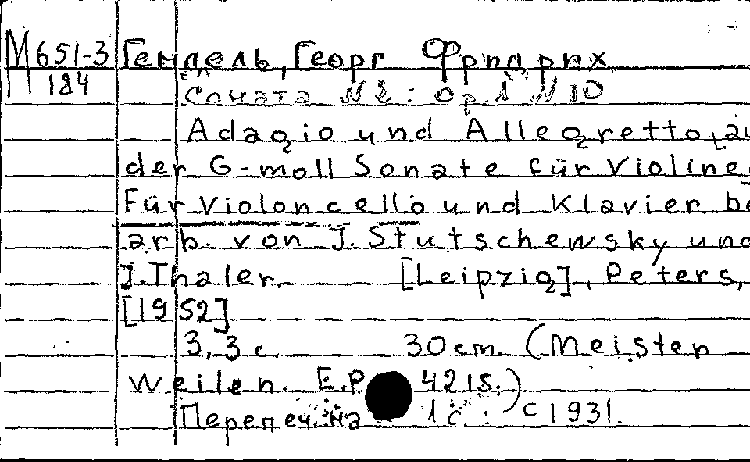 М651-3 Гендель, Георг Фридрих
184
Соната №2: Op.1 N10
Adagio und Allegretto, au
der G-moll Sonate für Violine
Für Violoncello und Klavier be
arb. von J. Stutschewsky und
J. Thaler. [Leipzig], Peters,
[1952]
3, 3 с. 30 cm. (Meister
Weilen. E.P. 4218.)
Перепеч. на 1 с.: c 1931.